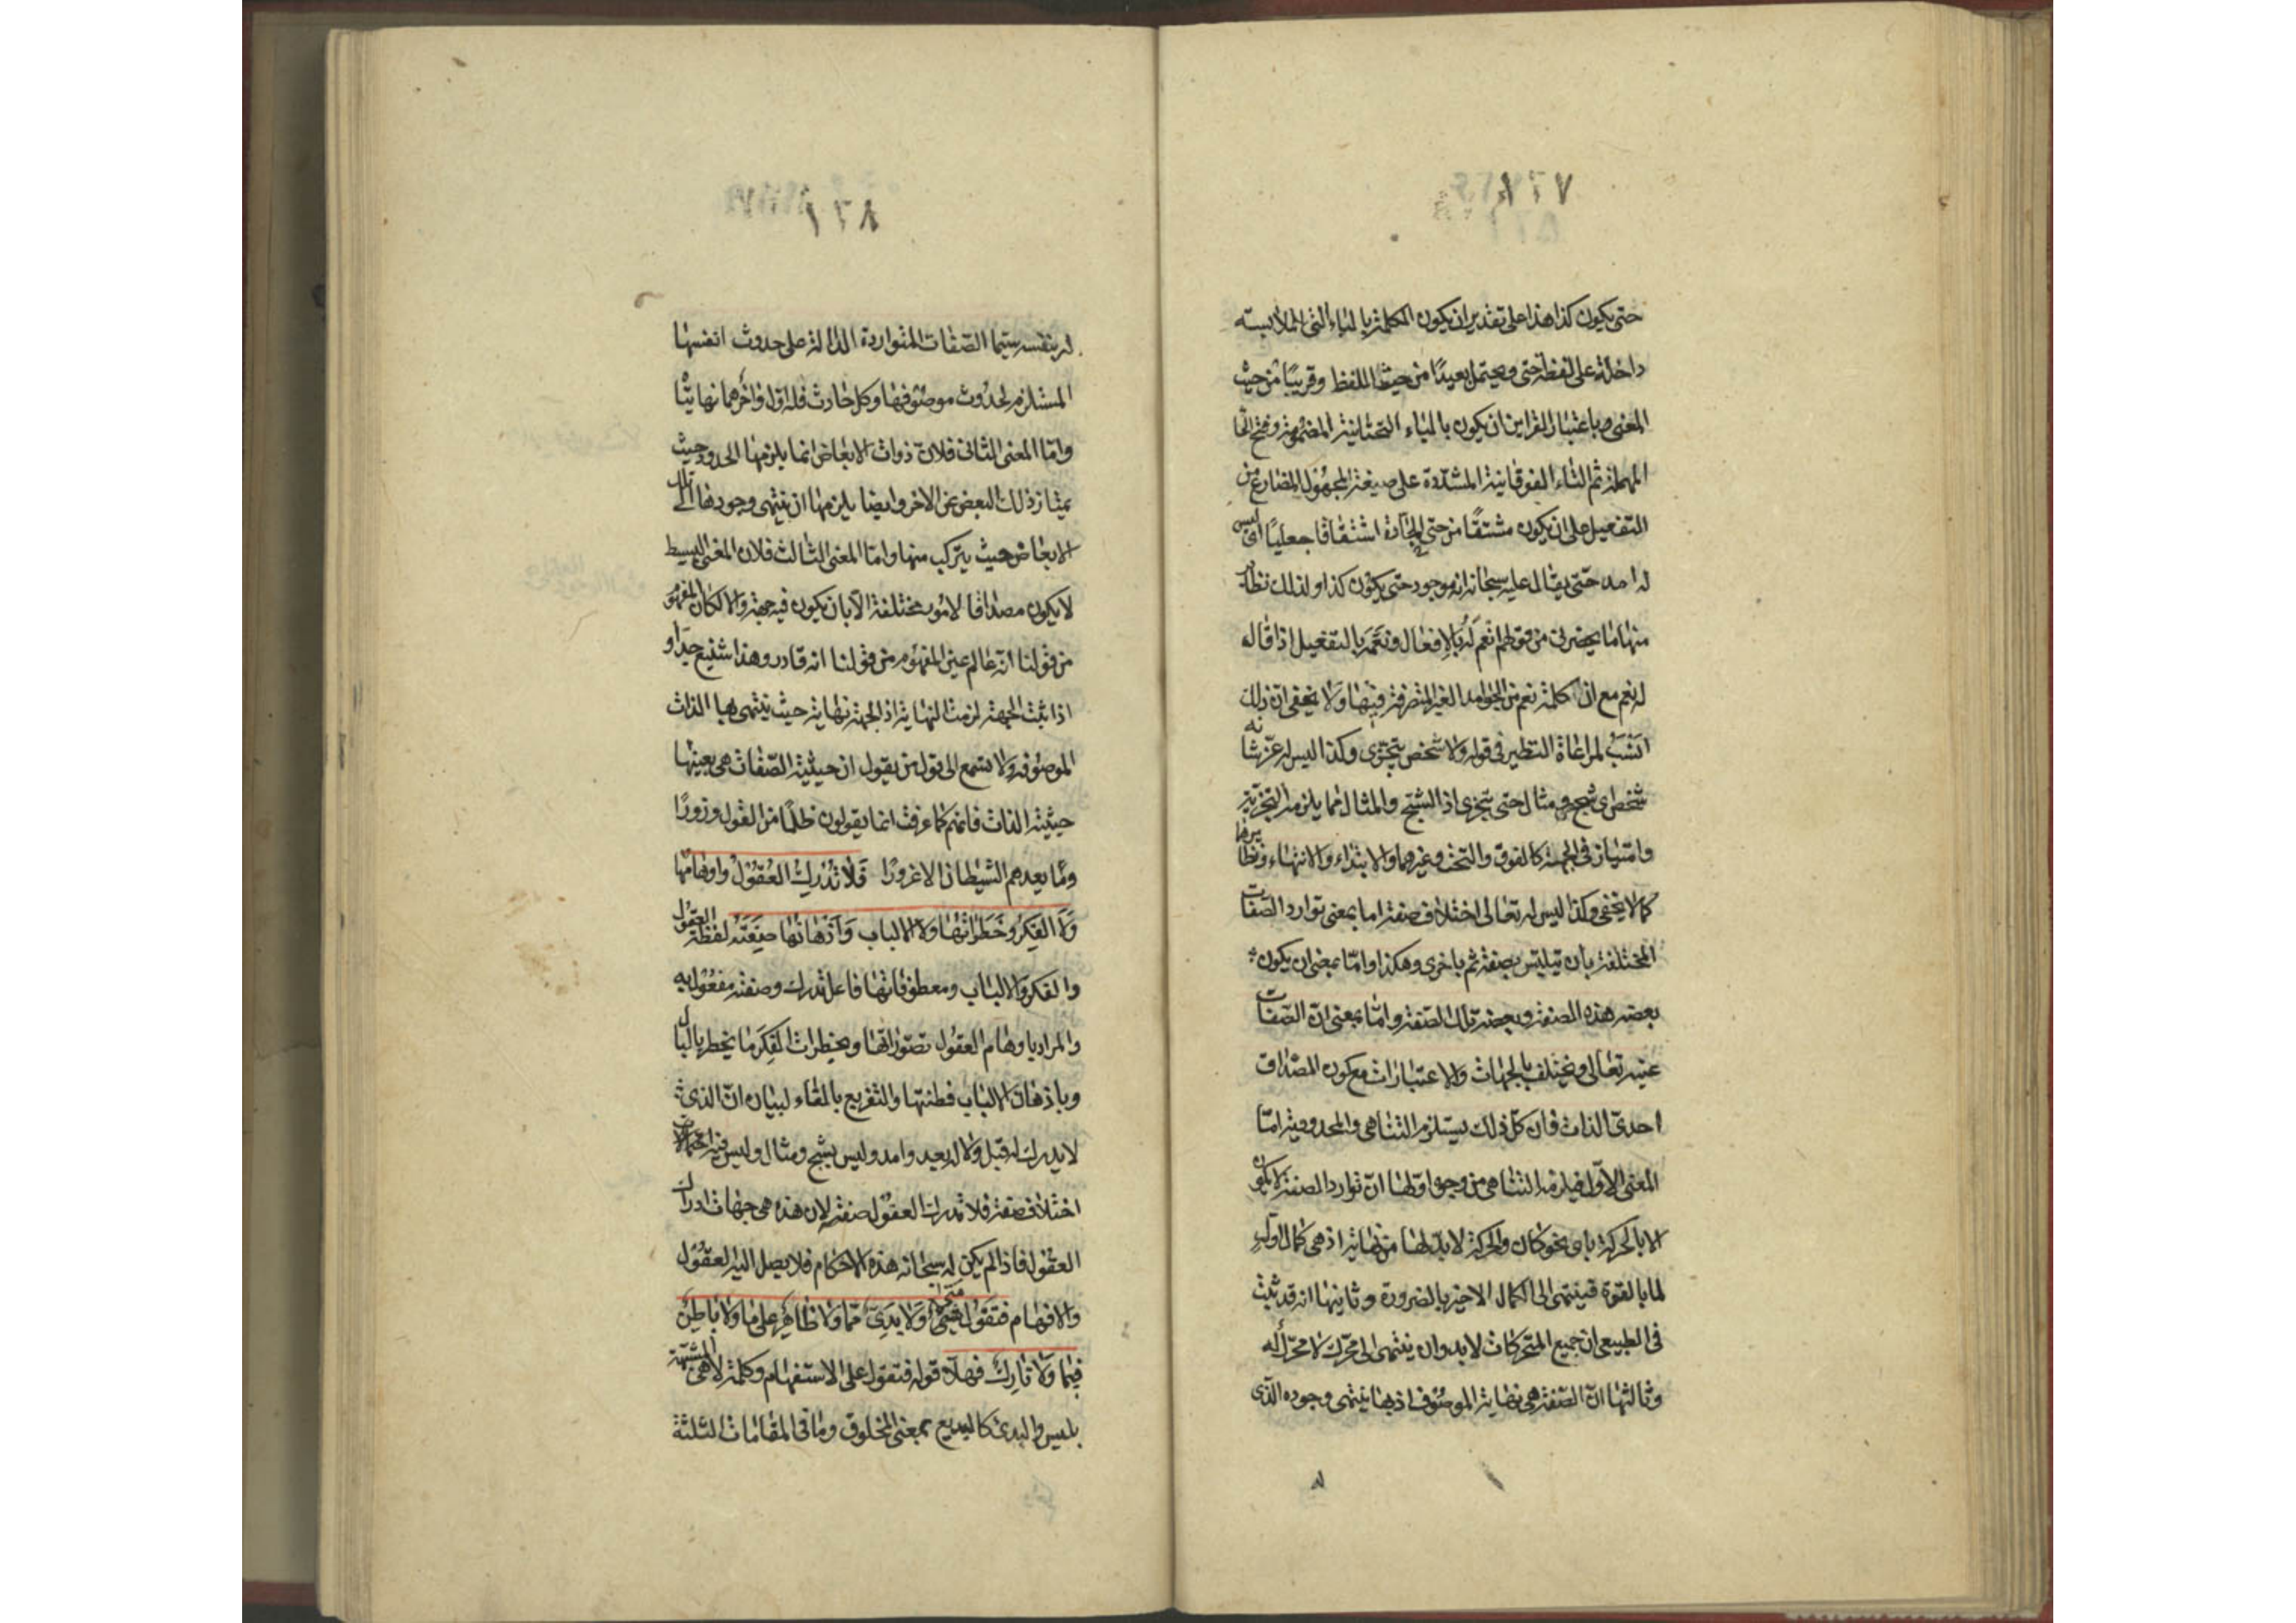 حتى يكون كذا هذا على تقدير ان يكون الكلمة بالباء التى للملابسته
داخلة على لفظة حتى ويحتمل بعيدًا من حيث اللفظ وقريبًا من حيث
المعنى وباعتبار القراين ان يكون بالياء التحتانية المضمومة وفتح الحا
المهملة ثم التاء الفوقانية المشددة على صيغة المجهول المضارع من
التفعيل على ان يكون مشتقًا من حتى الجارة اشتقاقا جعليًا اى ليس
له امد حتى يقال عليه سبحانه انه موجود حتى يكون كذا ولذلك نظاير
منها ما يحضرنى من قولهم انعم له بالافعال ونعم بالتفعيل اذا قال
له نعم مع ان كلمة نعم من الجوامد الغير المتصرفة فيها ولا يخفى ان ذلك
انسب لمراعاة النظير فى قوله ولا شخص يتجزى وكذا ليس له عز شانه
شخص اى شبح ومثال حتى يتجزى اذ الشبح والمثال مما يلزمه التجزية
وامتياز فى الجهة كالفوق والتحت وغيرهما والابتداء والانتهاء ونظايرها
كما لا يخفى وكذا ليس له تعالى اختلاف صفة اما بمعنى توارد الصفات
المختلفة بان يتلبس بصفة ثم باخرى وهكذا وامّا بمعنى ان يكون
بعضه هذه الصفة وبعضه تلك الصفة وامّا بمعنى انّ الصّفات
عينه تعالى ويختلف بالجهات والاعتبارات مع كون المصداق
احدىّ الذات فان كلّ ذلك يستلزم التناهى والمحدودية امّا
المعنى الاوّل فيلزمه التناهى من وجوه اوّلها انّ توارد الصفة لا يكون
الا بالحركة باى نحو كان والحركة لا بدّ لها من نهاية اذ هى كمال اوّل
لما بالقوة فينتهى الى الكمال الاخير بالضرورة وثانيها انه قد ثبت
فى الطبيعى ان جميع المتحركات لا بد وان ينتهى الى محرّك لا محرّك له
وثالثها انّ الصّفة هى نهاية الموصوف اذ بها ينتهى وجوده الّذى
له بنفسه سيّما الصّفات المتواردة الدّالة على حدوث انفسها
المستلزم لحدوث موصوفها وكل حادث فله اول واخر هما نهايتا
وامّا المعنى الثانى فلان ذوات الابعاض انما يلزمها الحدود حيث
يمتاز ذلك البعض عن الاخر وايضا يلزمها ان ينتهى وجودها الى تلك
الابعاض حيث يتركب منها وامّا المعنى الثالث فلان المعنى البسيط
لا يكون مصداقا لامور مختلفة الّا بان يكون فيه جهة والا لكان المفهوم
من قولنا انّه عالم عين المفهوم من قولنا انه قادر وهذا شنيع جدا و
اذا ثبت الجهة لزمت النهاية اذ الجهة نهاية حيث ينتهى بها الذات
الموصوفة ولا تسمع الى قول من يقول ان حيثية الصّفات هى بعينها
حيثية الذات فانهم كما عرفت انما يقولون ظلمًا من القول وزورًا
وما يعدهم الشيطان الا غرورًا فَلا تُدْرِكُ العُقُولُ واوهامُها
وَلَا الفِكَرُ وخَطَراتُها وَلا الالباب وَاَذْهانُها صِفَتَه لفظة العقول
والفكر والالباب ومعطوفاتها فاعل تدرك وصفته مفعول به
والمراد باوهام العقول تصوّراتها وبخطرات الفِكَر ما يخطر بالبال
وباذهان الالباب فطنتها والتفريع بالفاء لبيان انّ الذى
لا يدرك له قبل ولا له بعد وامد وليس بشبح ومثال وليس فيه احتمالات
اختلاف صفة فلا تدرك العقول صفته لان هذه هى جهات ادراك
العقول فاذا لم يكن له سبحانه هذه الاحكام فلا يصل اليه العقول
والافهام فتقول متى وَلا بَدِىّ مّما وَلا ظاهِرٌ على ما وَلا باطِنٌ
فيما وَلا تارِكٌ فهلّا قوله فتقول على الاستفهام وكلمة لا هى المشبّهة
بليس والبدى كالبديع بمعنى المخلوق وما فى المقامات الثلثة